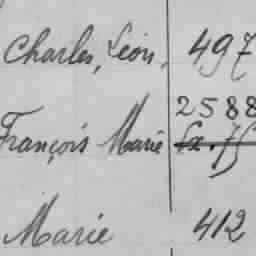 Charles, Léon, 497
2588
François Marie
Marie 412